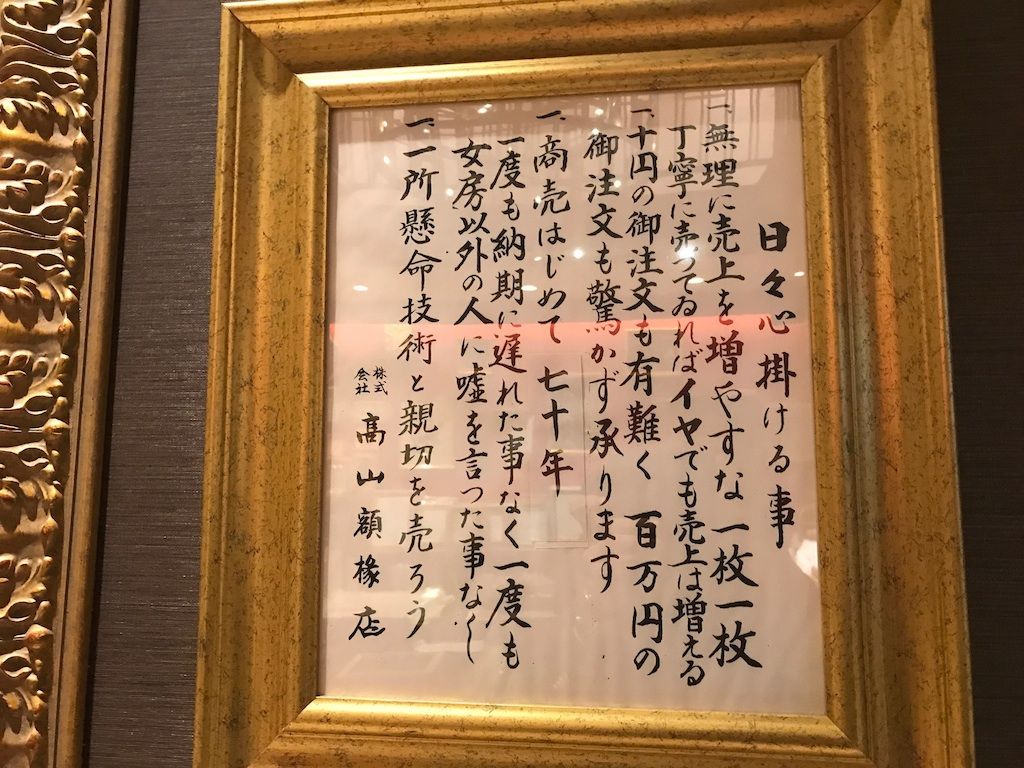 日々心掛ける事
一、無理に売上を増やすな 一枚一枚
丁寧に売ってゐればイヤでも売上は増える
一、十円の御注文も有難く 百万円の
御注文も驚かず承ります
一、商売はじめて七十年
一度も納期に遅れた事なく一度も
女房以外の人に嘘を言った事なし
一、一所懸命技術と親切を売ろう
株式会社 高山額椽店